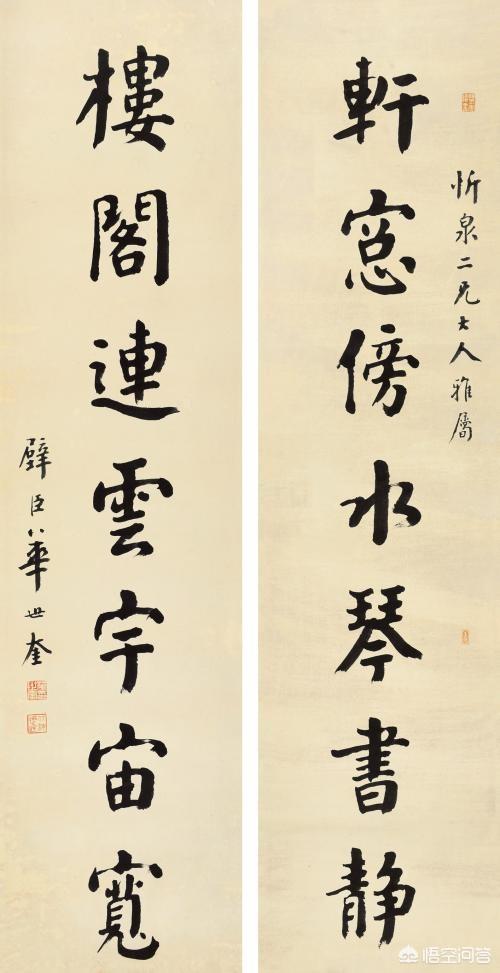 忻泉二兄大人雅屬
軒窓傍水琴書静
樓閣連雲宇宙寬
璧臣華世奎
悟空问答